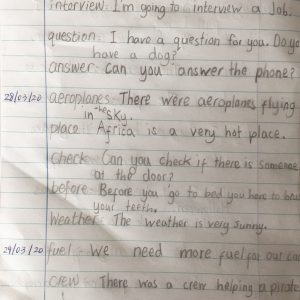 interview: I'm going to interview a Job.
question: I have a question for you. Do you
have a dog?
answer: can you answer the phone?
28/03/20 aeroplanes: There were aeroplanes flying
in the sky.
place: Africa is a very hot place.
check: Can you check if there is someone
at the door?
before: Before you go to bed you have to
your teeth.
Weather: The weather is very sunny.
29/03/20 fuel: We need more fuel for our
crew: There was a crew helping a pirate